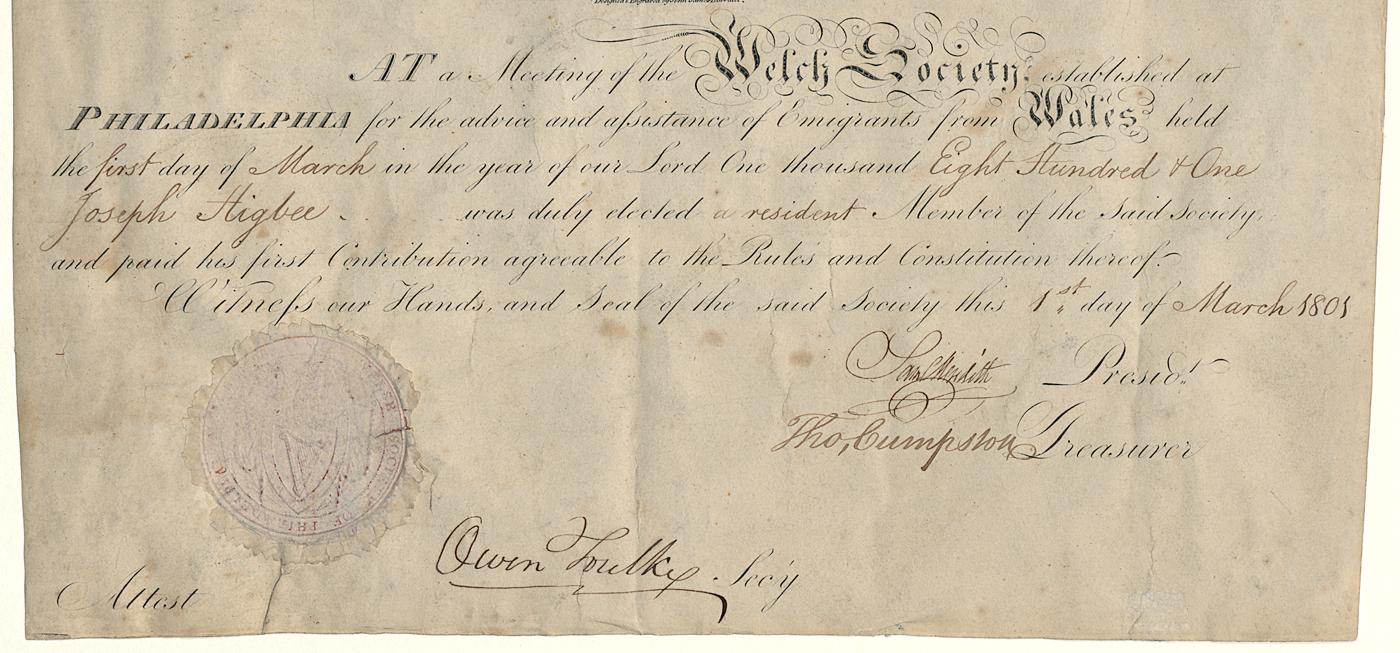 Designed & Engraved by John James Barralet.
AT a Meeting of the Welch Society, established at
PHILADELPHIA for the advice and assistance of Emigrants from Wales held
the first day of March in the year of our Lord One thousand Eight Hundred & One
Joseph Higbee was duly elected a resident Member of the Said Society,
and paid his first Contribution agreeable to the Rules and Constitution thereof.
Witness our Hands, and Seal of the said Society this 1st day of March 1801
Saml Meredith Presidt
Tho, Cumpston Treasurer
WELSH SOCIETY OF PHILADELPHIA
Owen Foulke Sec'y
Attest